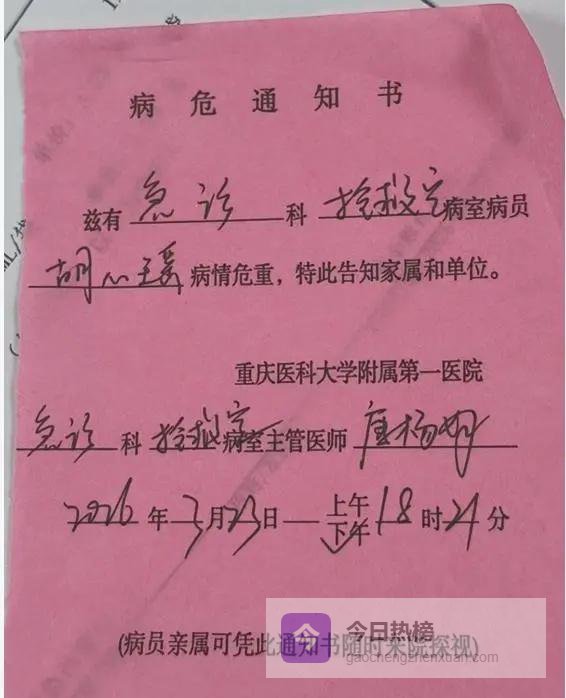 病危通知书
兹有 急诊 科 抢救室 病室病员
胡心瑶 病情危重，特此告知家属和单位。
重庆医科大学附属第一医院
急诊 科 抢救室 病室主管医师
2026 年 3 月 23 日 上午
下午 18 时 21 分
(病员亲属可凭此通知书随时来院探视)
今日热榜
gaochengzhenxuan.com